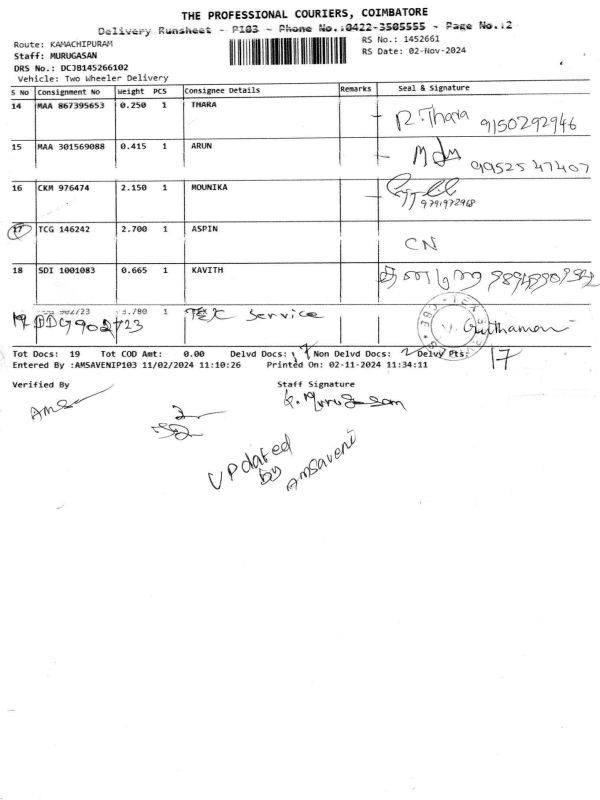 THE PROFESSIONAL COURIERS, COIMBATORE
Delivery Runsheet - P103 - Phone No.:0422-3505555 - Page No.:2
Route: KAMACHIPURAM
RS No.: 1452661
Staff: MURUGASAN
RS Date: 02-Nov-2024
DRS No.: DCJB145266102
Vehicle: Two Wheeler Delivery
S No Consignment No Weight PCS Consignee Details Remarks Seal & Signature
14 MAA 867395653 0.250 1 THARA R. Thara 9150292946
15 MAA 301569088 0.415 1 ARUN 9952547407
16 CKM 976474 2.150 1 MOUNIKA 9791972968
17 TCG 146242 2.700 1 ASPIN CN
18 SDI 1001083 0.665 1 KAVITH
902723 3.780 1 TEX Service
19 DDG 902723
Tot Docs: 19 Tot COD Amt: 0.00 Delvd Docs: 17 Non Delvd Docs: 2 Delvy Pts: 17
Entered By :AMSAVENIP103 11/02/2024 11:10:26 Printed On: 02-11-2024 11:34:11
Verified By Staff Signature
Ams
K. Murugesan
Updated
by
Amsaveni